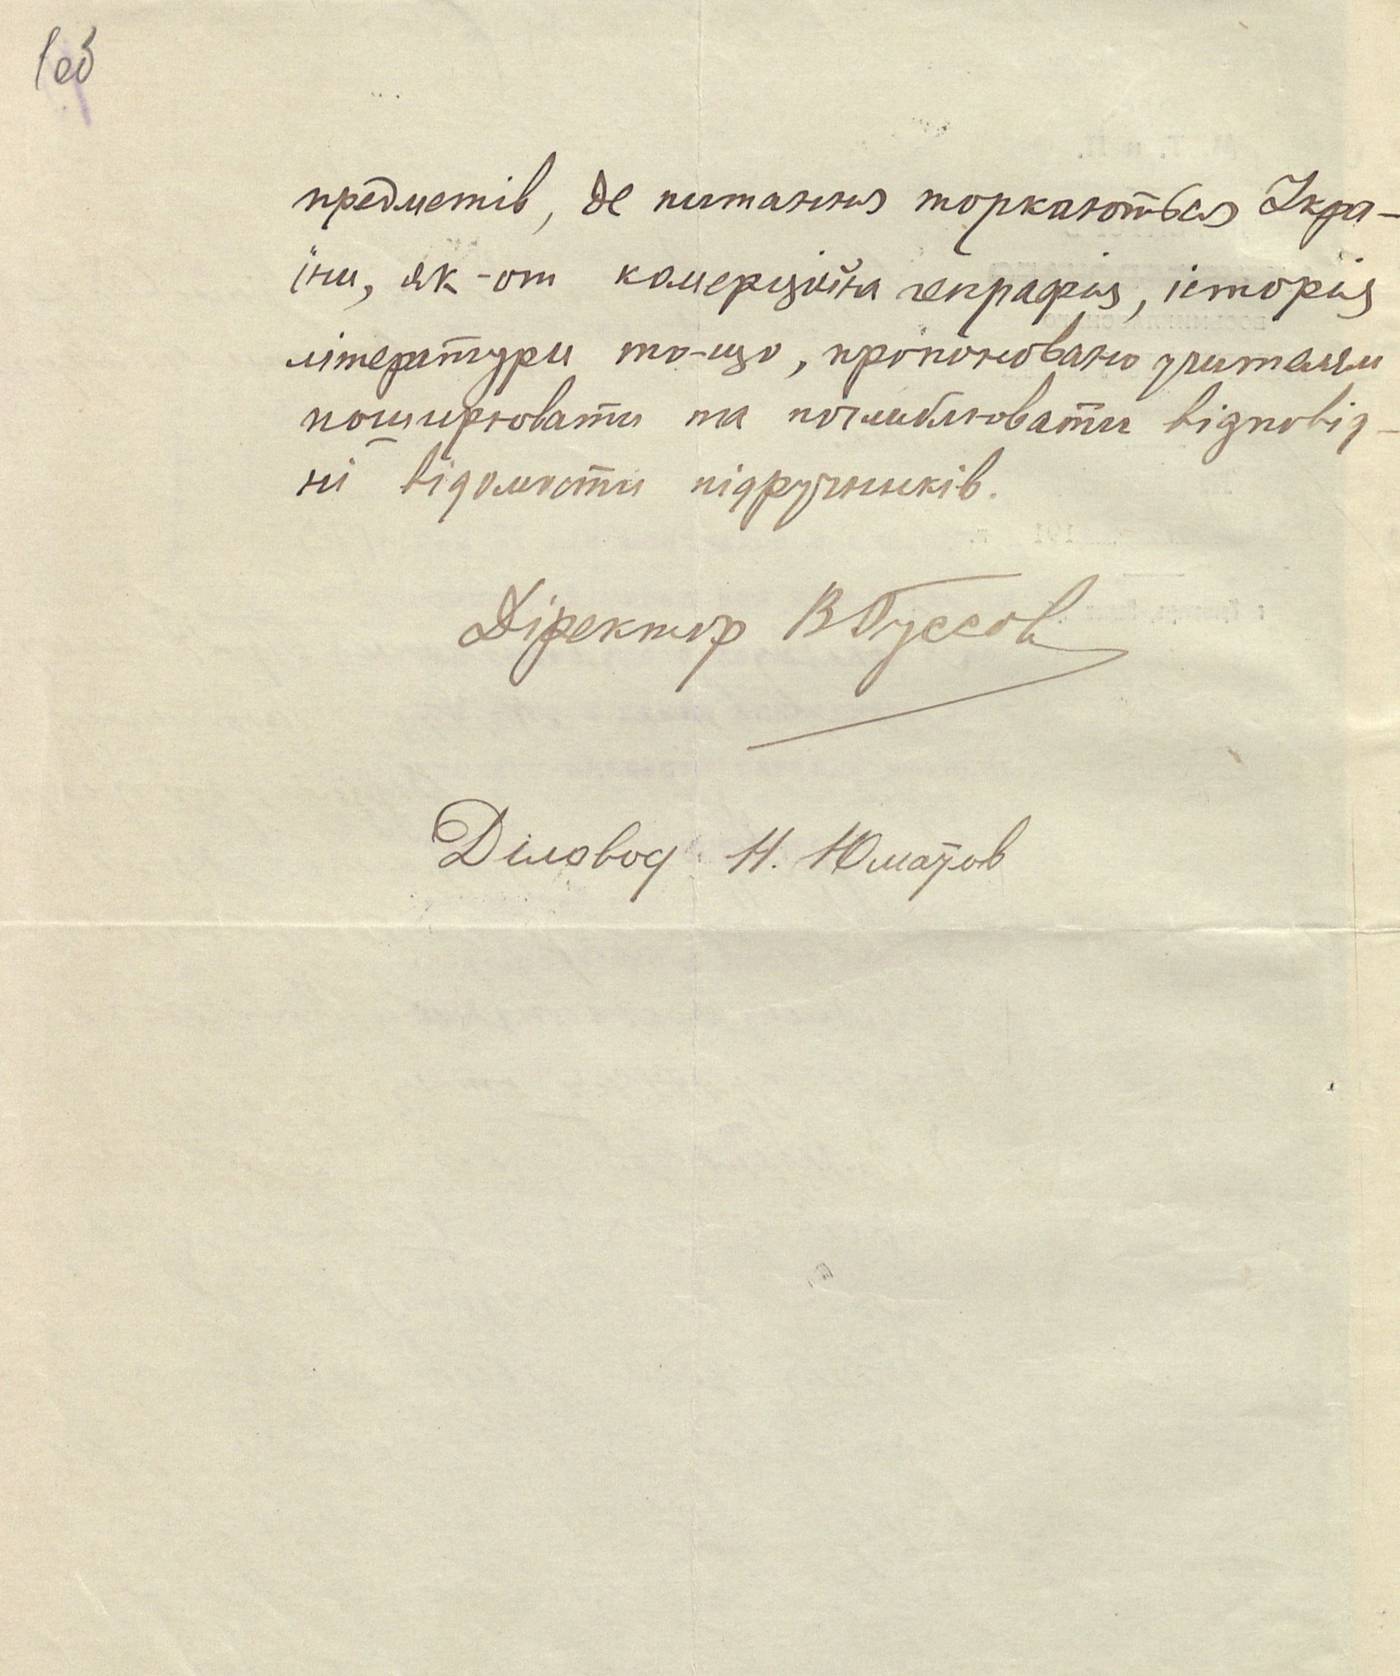 предметів, де питання торкаються Укра-
їни, як-от комерційна географія, історія
літератури то-що, пропоновано учителям
поширювати та поглиблювати відповід-
ні відомости підручників.
Діректор В Гуссов
Діловод Н. Юматов